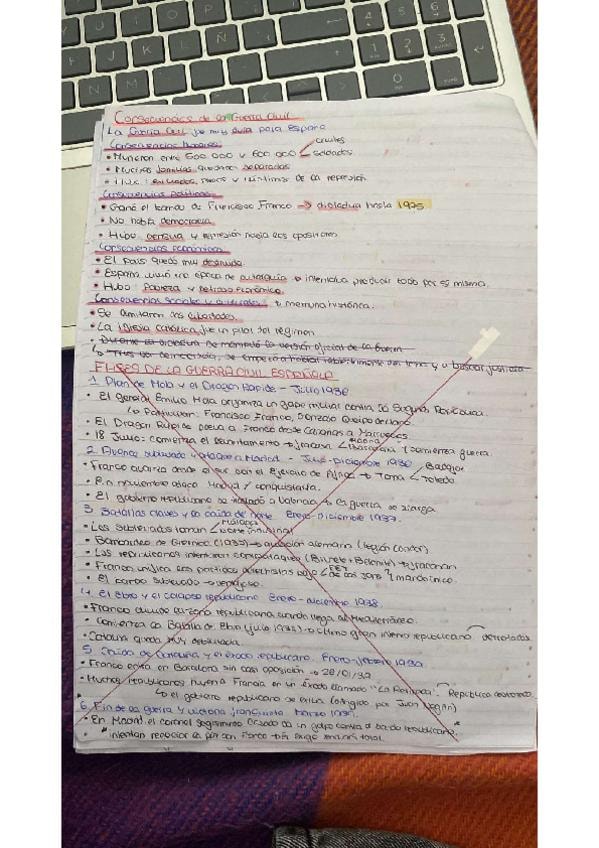 Consecuencias de la Guerra Civil
La Guerra Civil fue muy dura para España
Consecuencias humanas
• Murieron entre 500.000 y 600.000 civiles soldados
• Muchas familias quedaron separadas
• Hubo exiliados, presos y víctimas de la represión
Consecuencias políticas
• Ganó el bando de Francisco Franco → dictadura hasta 1975
• No había democracia
• Hubo censura y represión hacia los opositores
Consecuencias económicas
• El país quedó muy destruido
• España vivió una época de autarquía intentaba producir todo por sí misma.
• Hubo pobreza y retraso económico
Consecuencias sociales y culturales y memoria histórica.
• Se limitaron las libertades
• La Iglesia católica fue un pilar del régimen
• Durante la dictadura se mantuvo la versión oficial de la guerra
Tras la democracia, se empezó a hablar del tema y a buscar justicia
FASES DE LA GUERRA CIVIL ESPAÑOLA
1. Plan de Mola y el Dragon Rapide - Julio 1936
• El general Emilio Mola organiza un golpe militar contra la Segunda República.
Participan: Francisco Franco, Gonzalo Queipo de Llano
• El Dragon Rapide lleva a Franco desde Canarias a Marruecos
• 18 Julio: comienza el levantamiento fracasa Madrid Barcelona comienza guerra.
2. Avance sublevado y ataque a Madrid - Julio-diciembre 1936
• Franco avanza desde el sur con el Ejército de África → Toma Badajoz Toledo
• En noviembre ataca Madrid conquistarla.
• El gobierno republicano se traslada a Valencia la guerra se alarga
3. Batallas claves y la caída del norte. Enero-Diciembre 1937.
• Los sublevados toman Málaga norte industrial
• Bombardeo de Guernica (1937) → aviación alemana (Legión Cóndor)
• Los republicanos intentaron (Brunete + Belchite) fracasan
• Franco unifica los partidos bajo FET de las JONS mando único.
• El bando sublevado
4. El Ebro y el colapso republicano Enero-diciembre 1938
• Franco divide la zona republicana cuando llega al Mediterráneo.
• Comienza la Batalla de Ebro (julio 1938) → último gran intento republicano derrotados
• Cataluña queda muy debilitada
5. Caída de Cataluña y el éxodo republicano. Enero-febrero 1939
• Franco entra en Barcelona sin casi oposición → 26/01/39
• Muchos republicanos huyen a Francia en un éxodo llamado "La Retirada". República
el gobierno republicano se exilia (dirigido por Juan Negrín)
6. Fin de la guerra y victoria franquista Marzo 1939.
• En Madrid el coronel Segismundo Casado da un golpe contra el bando republicano.
• intentan negociar la paz con Franco total.